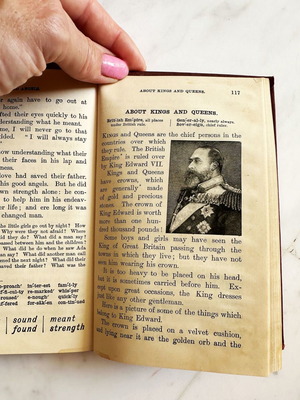 again have to go out at
home."
fted their eyes quickly to his
understanding what he meant.
me, I will never go to that
dded. "I will always stay
now understanding what their
their faces in his lap and
ence.
love had saved their father.
his good angels. But he did
own strength alone: he con-
to help him in his endeav-
life; and ere long it was
changed man.
the little girls go out by night? How
Why were they not afraid? Where
did they do? Said a man say?
passed between him and the children?
What did he do when he saw Ada
man say? What did another man call
the street? What did God do?
saved their father? What was the
in-ter-est fam-i-ly
re-marked' whis'per
e-nough' quick-ly
for-sak-en con-tin-ued
sound meant
found strength
ABOUT KINGS AND QUEENS. 117
ABOUT KINGS AND QUEENS.
Brit-ish Em'pire, all places under British rule.
Gen'er-al-ly, nearly always.
Sov'er-eign, chief ruler.
KINGS and Queens are the chief persons in the
countries over which
they rule. The British
Empire is ruled over
by King Edward VII.
Kings and Queens
have crowns, which
are generally made
of gold and precious
stones. The crown of
King Edward is worth
more than one hun-
dred thousand pounds!
Some boys and girls may have seen the
King of Great Britain passing through the
town in which they live; but they have not
seen him wearing his crown.
It is too heavy to be placed on his head,
but it is sometimes carried before him. Ex-
cept upon great occasions, the King dresses
just like any other gentleman.
Here is a picture of some of the things which
belong to King Edward.
The crown is placed on a velvet cushion,
and lying near it are the golden orb and the